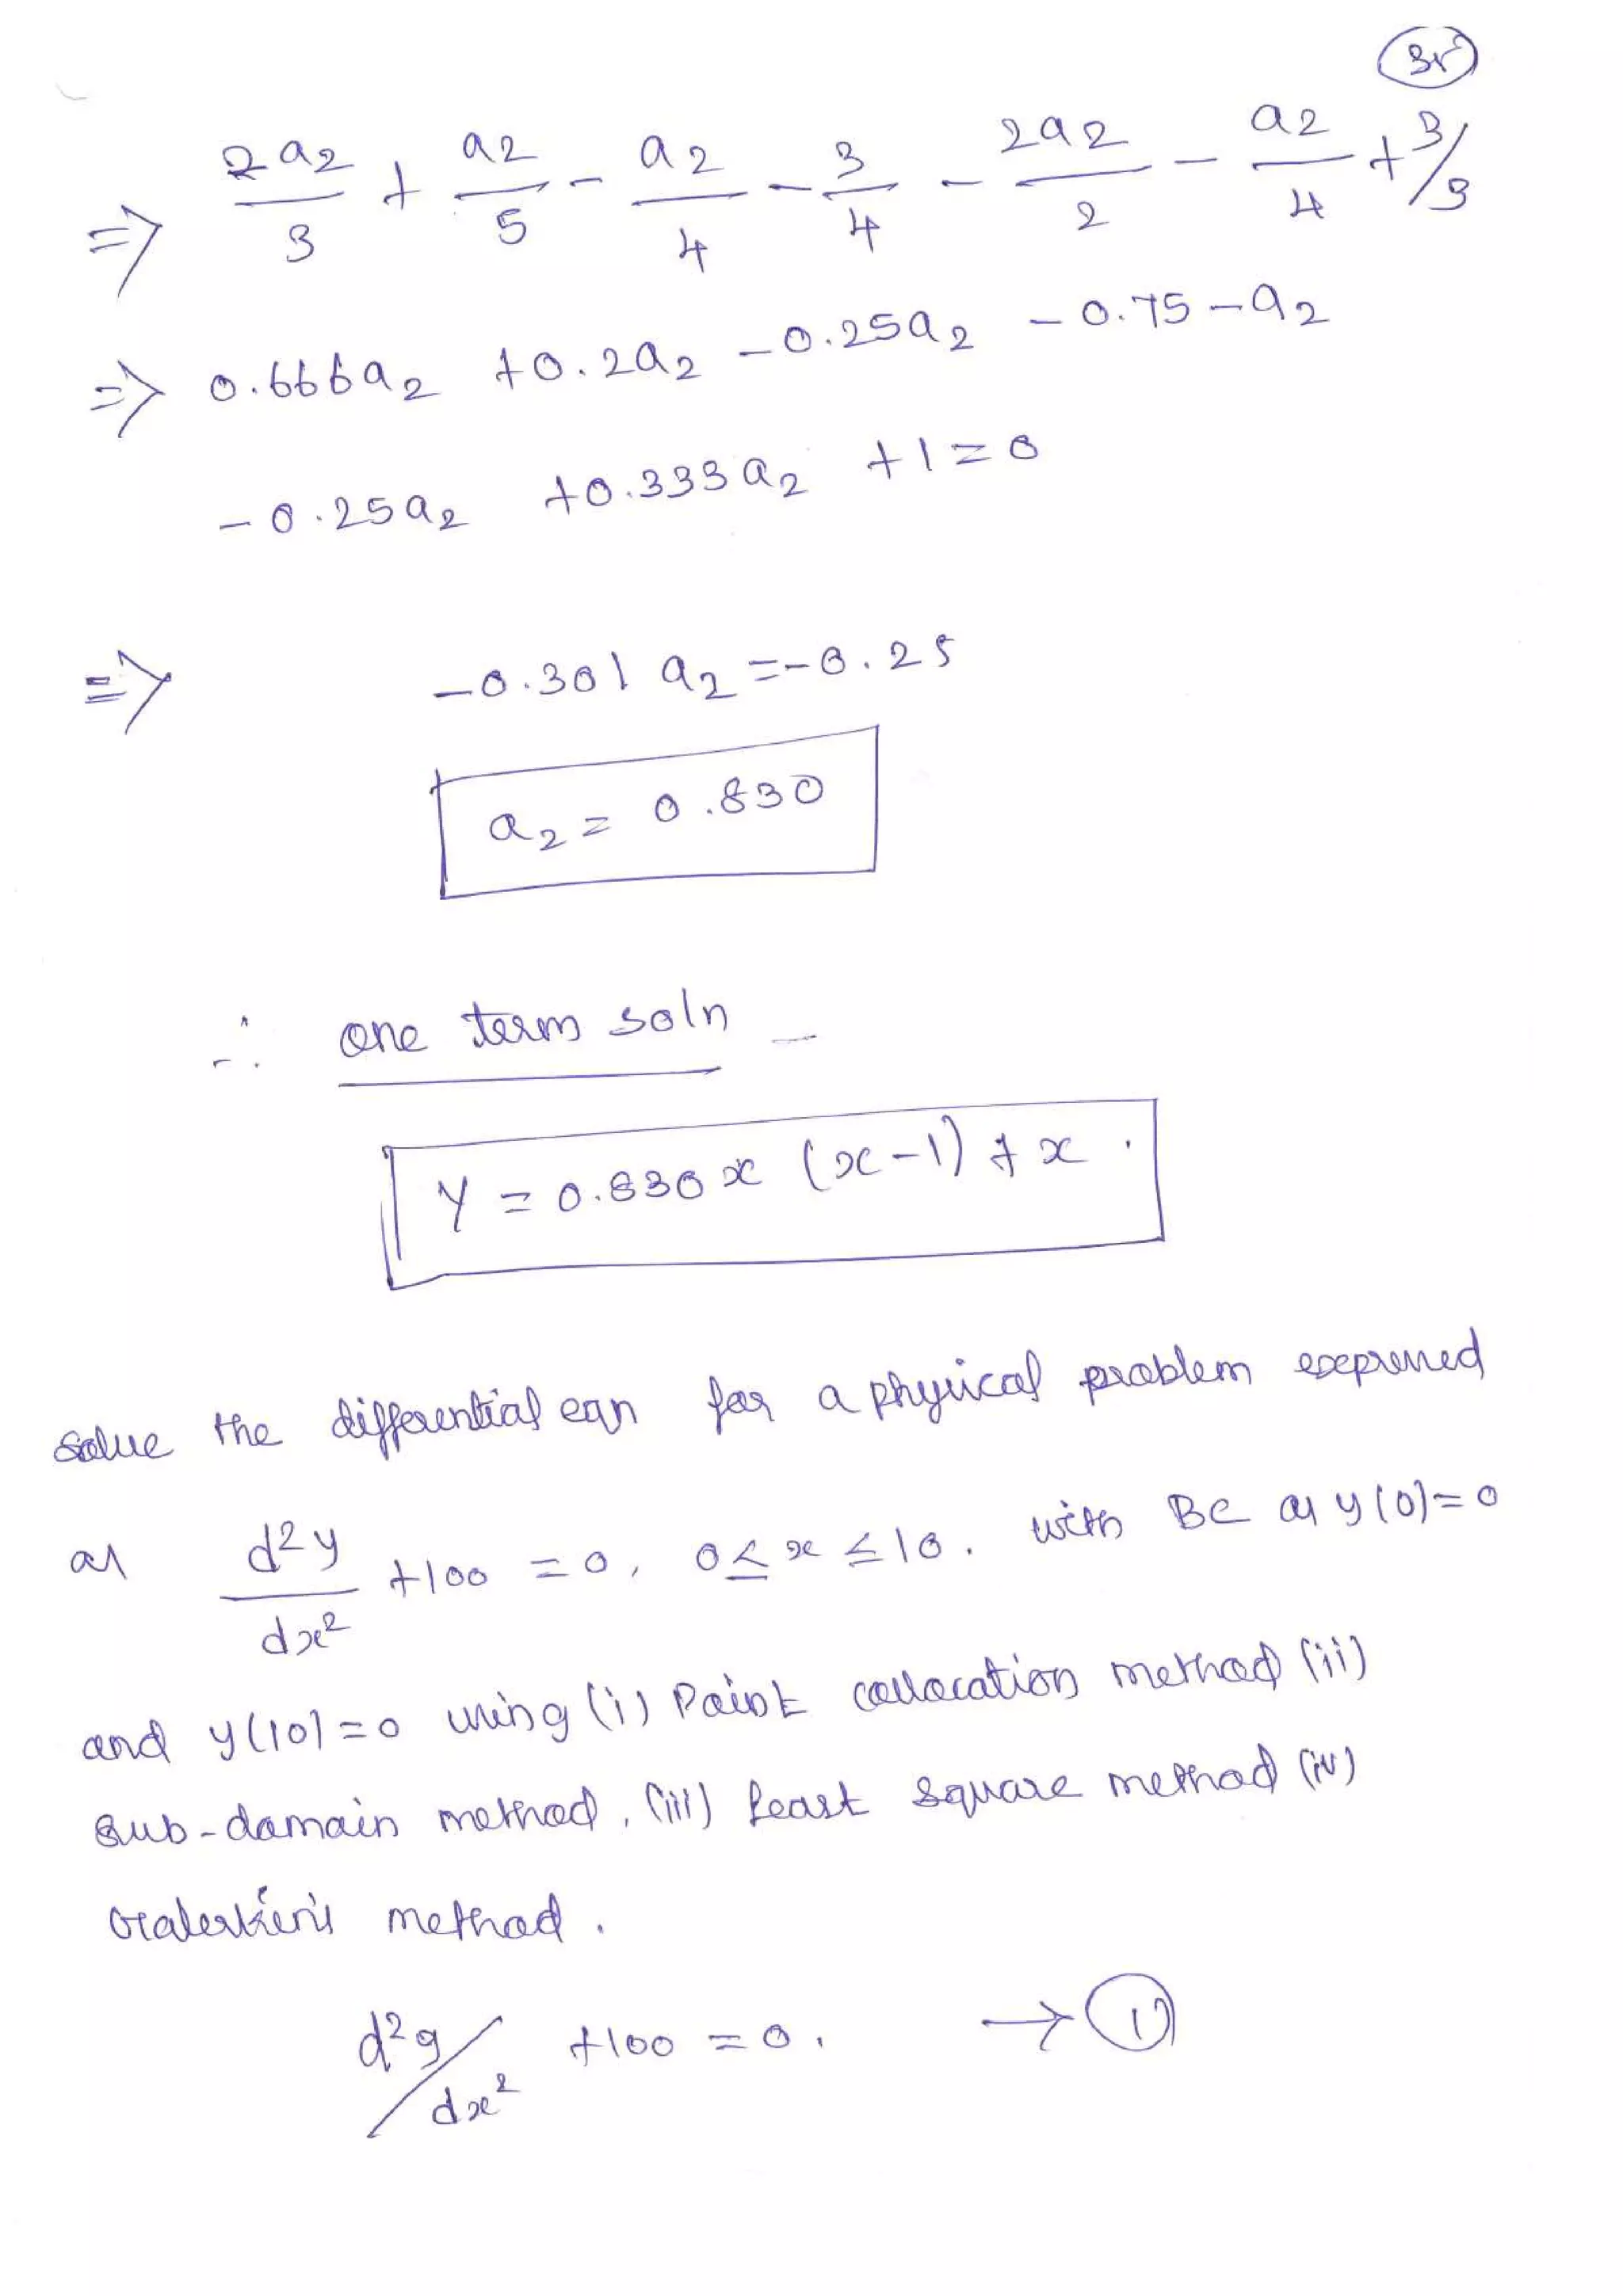 ⇒ 2a2/3 + a2/5 - a2/4 - 3/4 - 2a2/2 - a2/4 + 3/3
⇒ 0.666a2 +0.2a2 -0.25a2 -0.75 -a2
-0.25a2 +0.333a2 +1=0
⇒ -0.301 a2 =-0.25
a2 = 0.830
∴ one term soln -
Y = 0.830x (x-1) + x.
solve the differential eqn for a physical problem expressed
as d²y/dx² +100 = 0, 0≤ x ≤10. with BC as y(0)=0
and y(10)=0 using (i) Point collocation method (ii)
sub-domain method, (iii) Least square method (iv)
Galerkin's method.
d²y/dx² +100 = 0. → 1